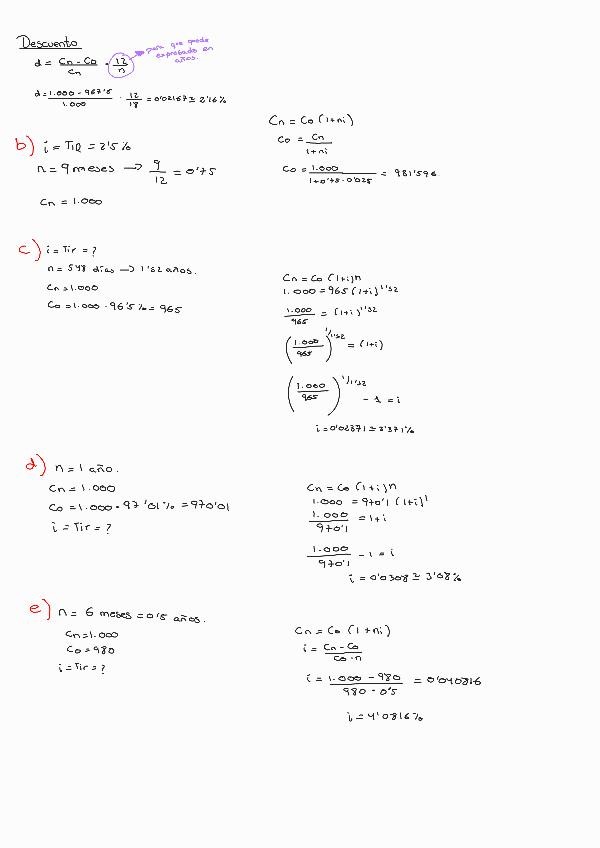 Descuento
d = Cn - Co / Cn · 12 / n → para que quede expresado en años.
d = 1.000 - 967'5 / 1.000 · 12 / 18 = 0'02167 ≈ 2'16%
Cn = Co (1+ni)
Co = Cn / 1+ni
Co = 1.000 / 1+0'75·0'025 = 981'596
b) i = TIR = 2'5%
n = 9 meses → 9 / 12 = 0'75
Cn = 1.000
c) i = Tir = ?
n = 548 días → 1'52 años.
Cn = 1.000
Co = 1.000 · 96'5% = 965
Cn = Co (1+i)^n
1.000 = 965 (1+i)^1'52
1.000 / 965 = (1+i)^1'52
(1.000 / 965)^1/1'52 = (1+i)
(1.000 / 965)^1/1'52 - 1 = i
i = 0'02371 ≈ 2'371%
d) n = 1 año.
Cn = 1.000
Co = 1.000 · 97'01% = 970'01
i = Tir = ?
Cn = Co (1+i)^n
1.000 = 970'1 (1+i)^1
1.000 / 970'1 = 1+i
1.000 / 970'1 - 1 = i
i = 0'0308 ≈ 3'08%
e) n = 6 meses = 0'5 años.
Cn = 1.000
Co = 980
i = Tir = ?
Cn = Co (1+ni)
i = Cn - Co / Co · n
i = 1.000 - 980 / 980 · 0'5 = 0'040816
i = 4'0816%